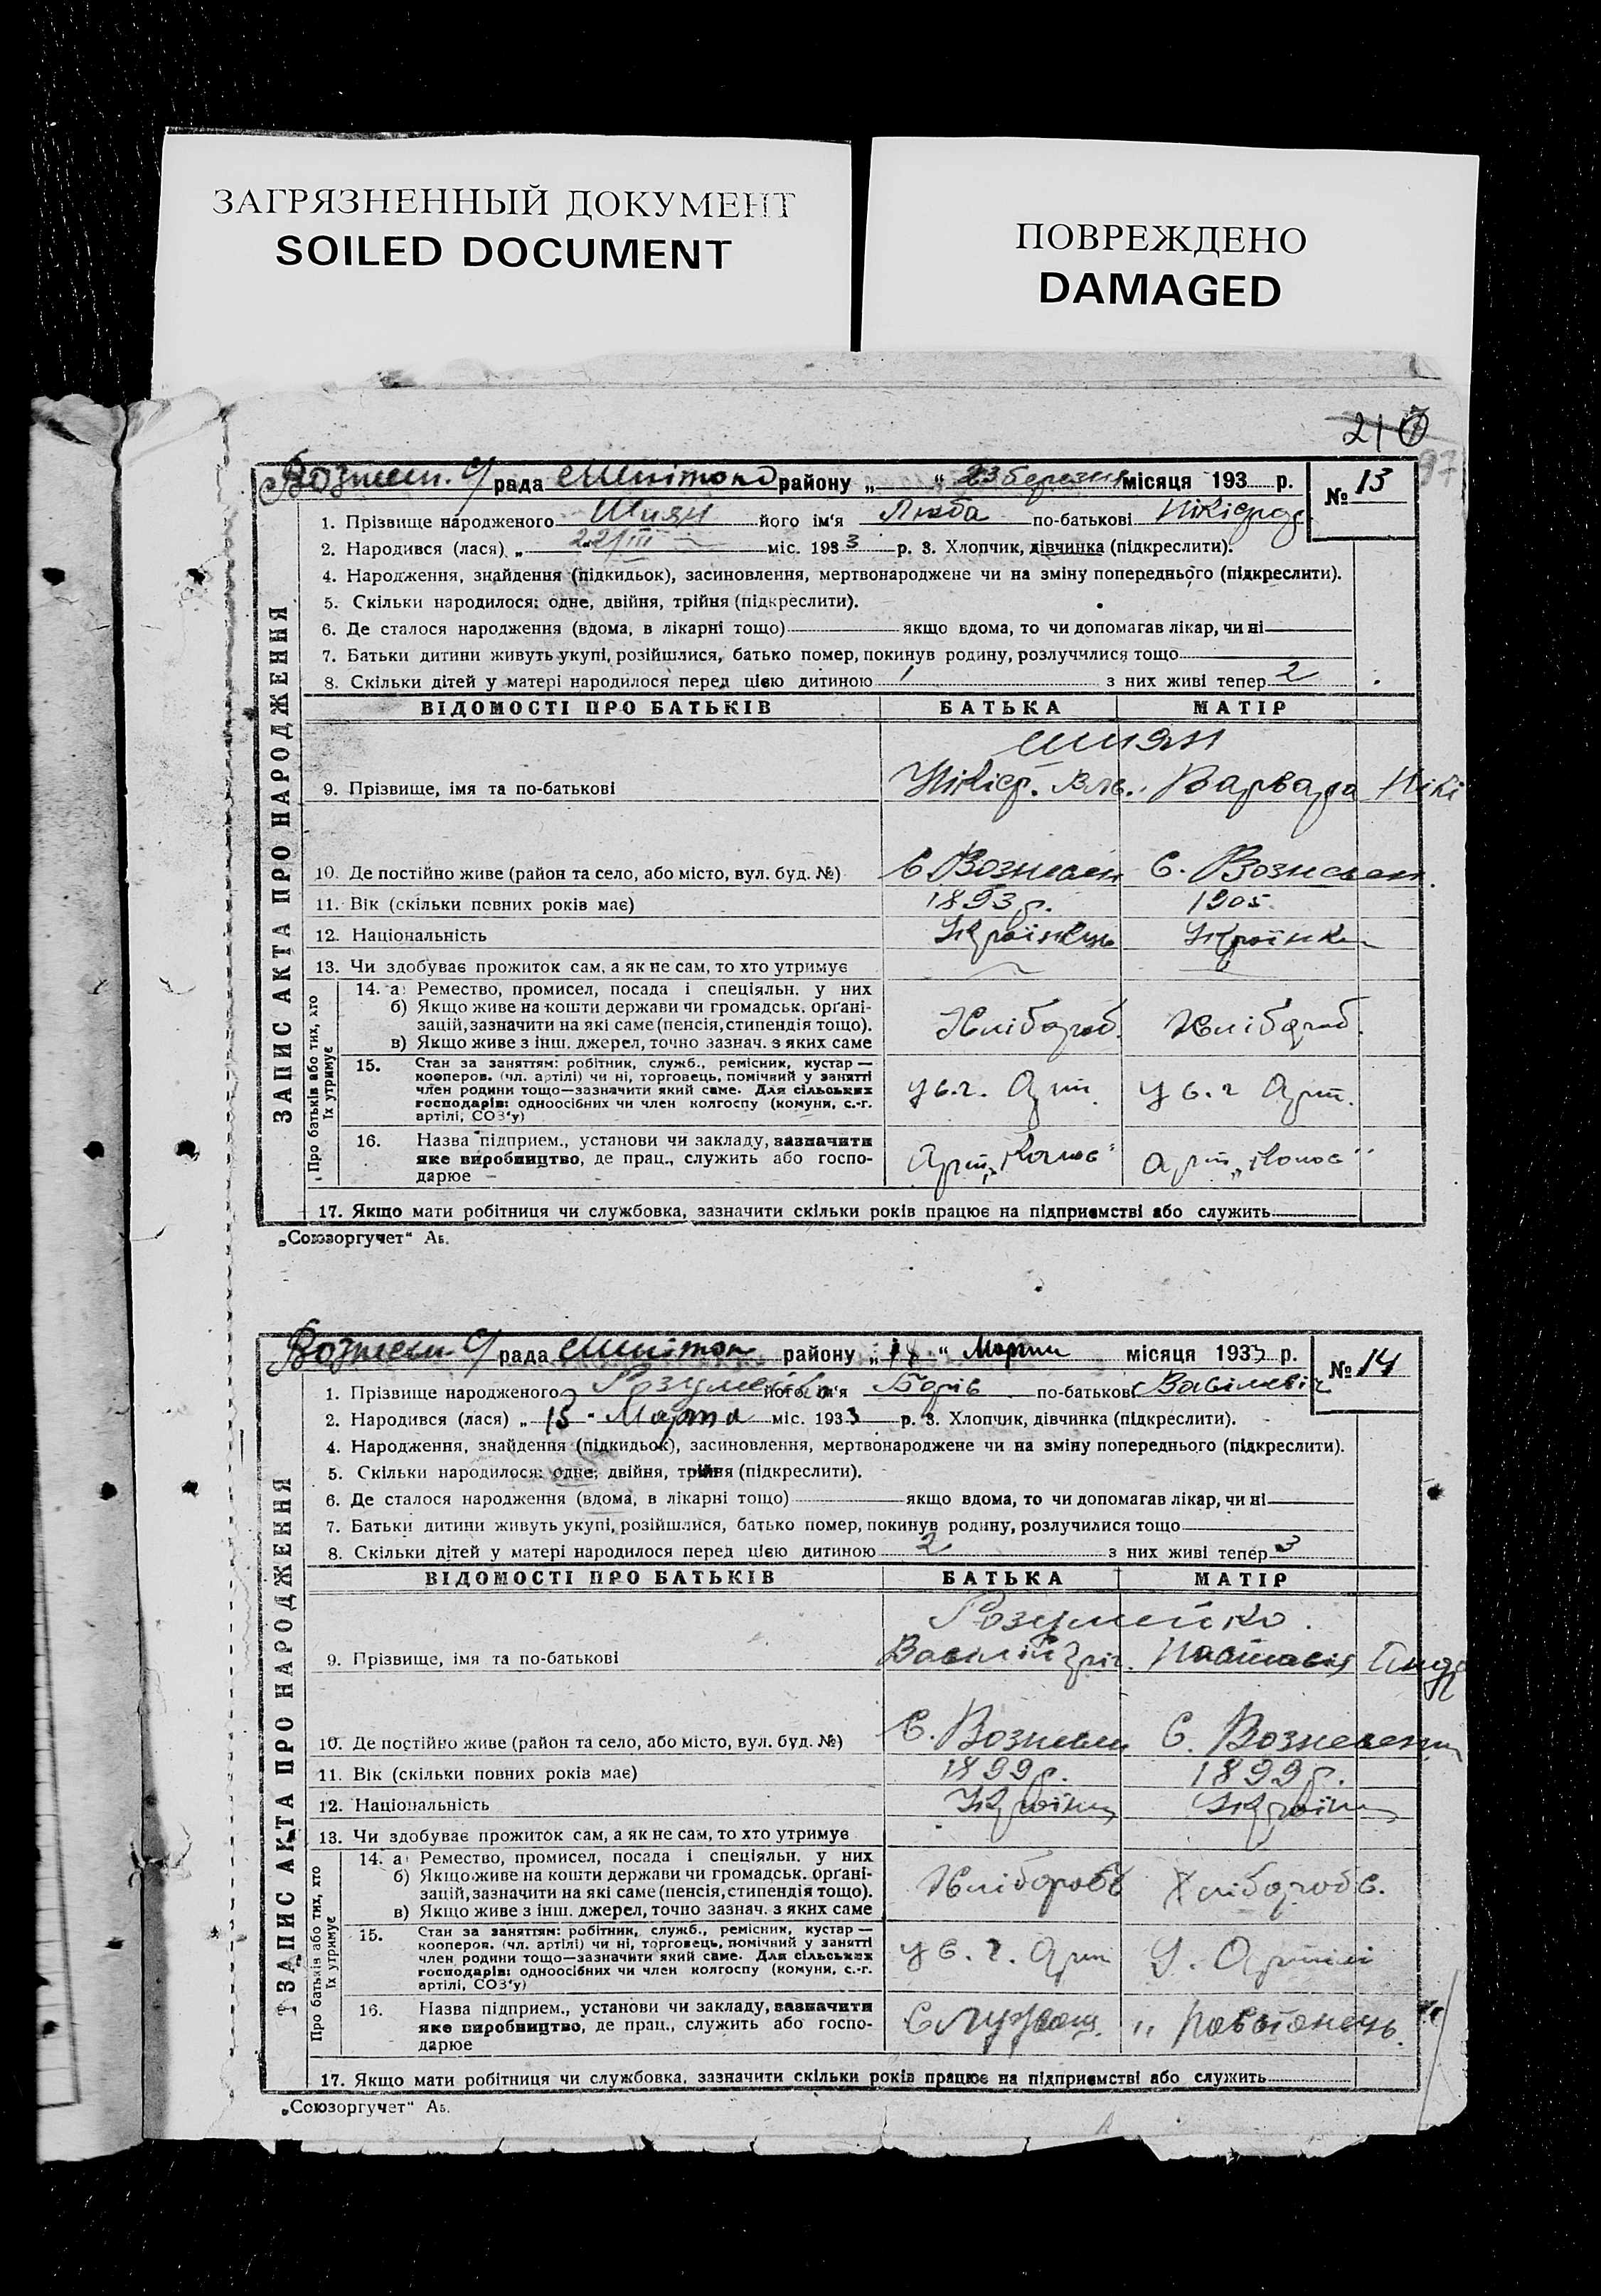 ЗАГРЯЗНЕННЫЙ ДОКУМЕНТ
SOILED DOCUMENT
ПОВРЕЖДЕНО
DAMAGED
ЗАПИС АКТА ПРО НАРОДЖЕННЯ
Вознесен. с/рада району „ “ 23 березня місяця 193 р. № 13
1. Прізвище народженого Шиян його ім'я Люба по-батькові
2. Народився (лася) „ 22/III міс. 1933 р. 3. Хлопчик, дівчинка (підкреслити).
4. Народження, знайдення (підкидьок), засиновлення, мертвонароджене чи на зміну попереднього (підкреслити).
5. Скільки народилося: одне, двійня, трійня (підкреслити).
6. Де сталося народження (вдома, в лікарні тощо) якщо вдома, то чи допомагав лікар, чи ні
7. Батьки дитини живуть укупі, розійшлися, батько помер, покинув родину, розлучилися тощо
8. Скільки дітей у матері народилося перед цією дитиною 1 з них живі тепер 2
ВІДОМОСТІ ПРО БАТЬКІВ БАТЬКА МАТІР
Шиян
9. Прізвище, імя та по-батькові Нікіф. Варвара Нікі
10. Де постійно живе (район та село, або місто, вул. буд. №) С. Вознесен С. Вознесен.
11. Вік (скільки повних років має) 1893 р. 1905.
12. Національність Українець Українка
13. Чи здобуває прожиток сам, а як не сам, то хто утримує
Про батьків або тих, хто їх утримує
14. а) Ремество, промисел, посада і спеціяльн. у них
б) Якщо живе на кошти держави чи громадськ. орґані-
зацій, зазначити на які саме (пенсія, стипендія тощо). Хлібороб. Хлібороб.
в) Якщо живе з інш. джерел, точно зазнач. з яких саме
15. Стан за заняттям: робітник, служб., ремісник, кустар —
кооперов. (чл. артілі) чи ні, торговець, помічний у занятті
член родини тощо—зазначити який саме. Для сільських У с.г. Арт. У с.г Арт.
господарів: одноосібних чи член колгоспу (комуни, с.-г.
артілі, СОЗ'у)
16. Назва підприєм., установи чи закладу, зазначити
яке виробництво, де прац., служить або госпо- Арт. „Колос“ Арт. „Колос“
дарює
17. Якщо мати робітниця чи службовка, зазначити скільки років працює на підприємстві або служить
„Союзоргучет“ Аб.
ЗАПИС АКТА ПРО НАРОДЖЕННЯ
Вознесен. с/рада району „ “ Марта місяця 1933 р. № 14
1. Прізвище народженого його ім'я Боріс по-батькові Васілевіч
2. Народився (лася) „ 15 “ Марта міс. 1933 р. 3. Хлопчик, дівчинка (підкреслити).
4. Народження, знайдення (підкидьок), засиновлення, мертвонароджене чи на зміну попереднього (підкреслити).
5. Скільки народилося: одне, двійня, трійня (підкреслити).
6. Де сталося народження (вдома, в лікарні тощо) якщо вдома, то чи допомагав лікар, чи ні
7. Батьки дитини живуть укупі, розійшлися, батько помер, покинув родину, розлучилися тощо
8. Скільки дітей у матері народилося перед цією дитиною 2 з них живі тепер 3
ВІДОМОСТІ ПРО БАТЬКІВ БАТЬКА МАТІР
Розумейко.
9. Прізвище, імя та по-батькові Василій Гріг. Настасія Андр
10. Де постійно живе (район та село, або місто, вул. буд. №) С. Вознесен С. Вознесен
11. Вік (скільки повних років має) 1899 р. 1899 р.
12. Національність Україн Україн
13. Чи здобуває прожиток сам, а як не сам, то хто утримує
Про батьків або тих, хто їх утримує
14. а) Ремество, промисел, посада і спеціяльн. у них
б) Якщо живе на кошти держави чи громадськ. орґані-
зацій, зазначити на які саме (пенсія, стипендія тощо). Хлібороб Хліборобс.
в) Якщо живе з інш. джерел, точно зазнач. з яких саме
15. Стан за заняттям: робітник, служб., ремісник, кустар —
кооперов. (чл. артілі) чи ні, торговець, помічний у занятті
член родини тощо—зазначити який саме. Для сільських У с.г. Арт У. Артілі
господарів: одноосібних чи член колгоспу (комуни, с.-г.
артілі, СОЗ'у)
16. Назва підприєм., установи чи закладу, зазначити
яке виробництво, де прац., служить або госпо-
дарює
17. Якщо мати робітниця чи службовка, зазначити скільки років працює на підприємстві або служить
„Союзоргучет“ Аб.